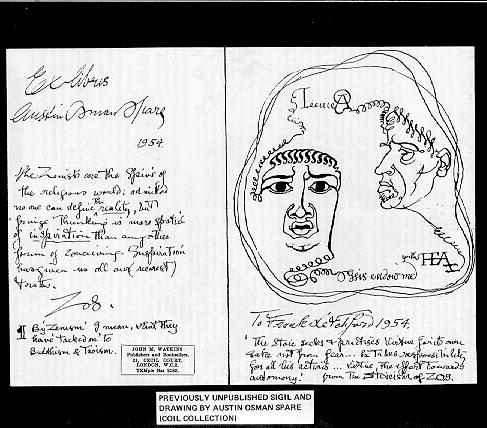 Ex-libris
Austin Osman Spare
1954
The Zenists are the Spivs of
the religious world; admitted
no one can define the reality, but
'fringe thinking' is more spatial
of inspiration than any other
form of conceiving. Inspiration
has given us all our nearest
truths.
Zos.
¶ By 'Zenism' I mean, what they
have 'tacked on' to
Buddhism & Taoism.
JOHN M. WATKINS
Publishers and Booksellers,
21, CECIL COURT,
LONDON, W.C.2.
TEMple Bar 2182.
this endow me
HEAL
To Frank Letchford 1954.
'The Stoic seeks & practises Virtue for its own
sake not from fear... he takes responsibility
for all his actions ... virtue, the effort towards
autonomy.' from The Stoicism of ZOS.
PREVIOUSLY UNPUBLISHED SIGIL AND
DRAWING BY AUSTIN OSMAN SPARE
(COIL COLLECTION)